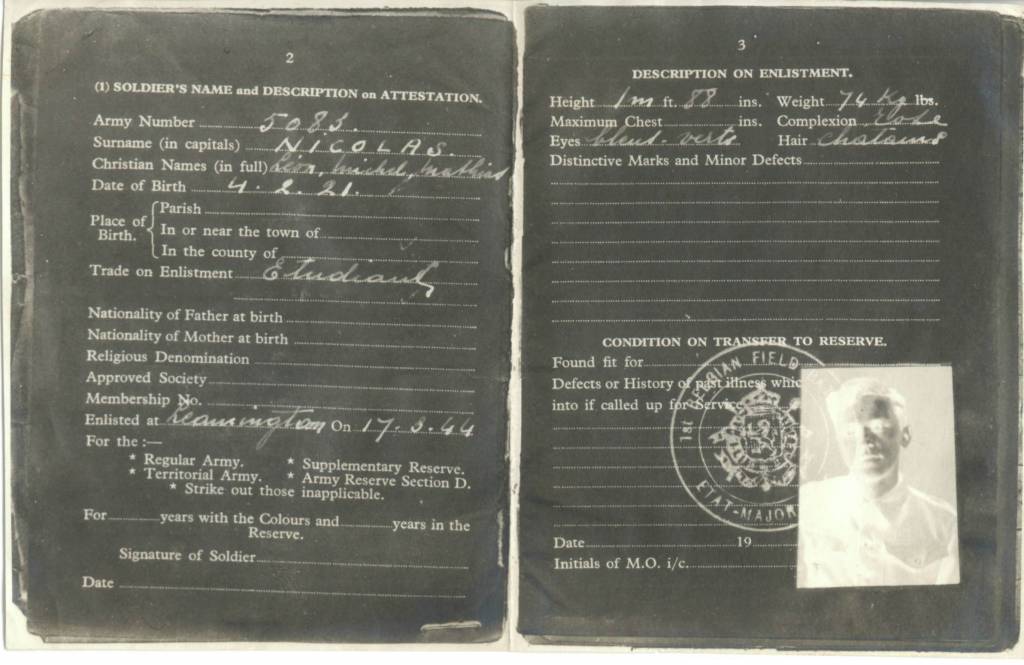 2
(1) SOLDIER'S NAME and DESCRIPTION on ATTESTATION.
Army Number 5083.
Surname (in capitals) NICOLAS.
Christian Names (in full) Léon, Michel, Mathieu
Date of Birth 4.2.21.
Place of Birth.
Parish
In or near the town of
In the county of
Trade on Enlistment Etudiant
Nationality of Father at birth
Nationality of Mother at birth
Religious Denomination
Approved Society
Membership No.
Enlisted at Leamington On 17.3.44
For the :—
* Regular Army. * Supplementary Reserve.
* Territorial Army. * Army Reserve Section D.
* Strike out those inapplicable.
For years with the Colours and years in the
Reserve.
Signature of Soldier
Date
3
DESCRIPTION ON ENLISTMENT.
Height 1m ft. 88 ins. Weight 74 Kg lbs.
Maximum Chest ins. Complexion
Eyes bleus-verts Hair chatains
Distinctive Marks and Minor Defects
CONDITION ON TRANSFER TO RESERVE.
Found fit for
Defects or History of past illness whic
into if called up for Service
1st BELGIAN FIELD
ETAT-MAJOR
Date 19
Initials of M.O. i/c.